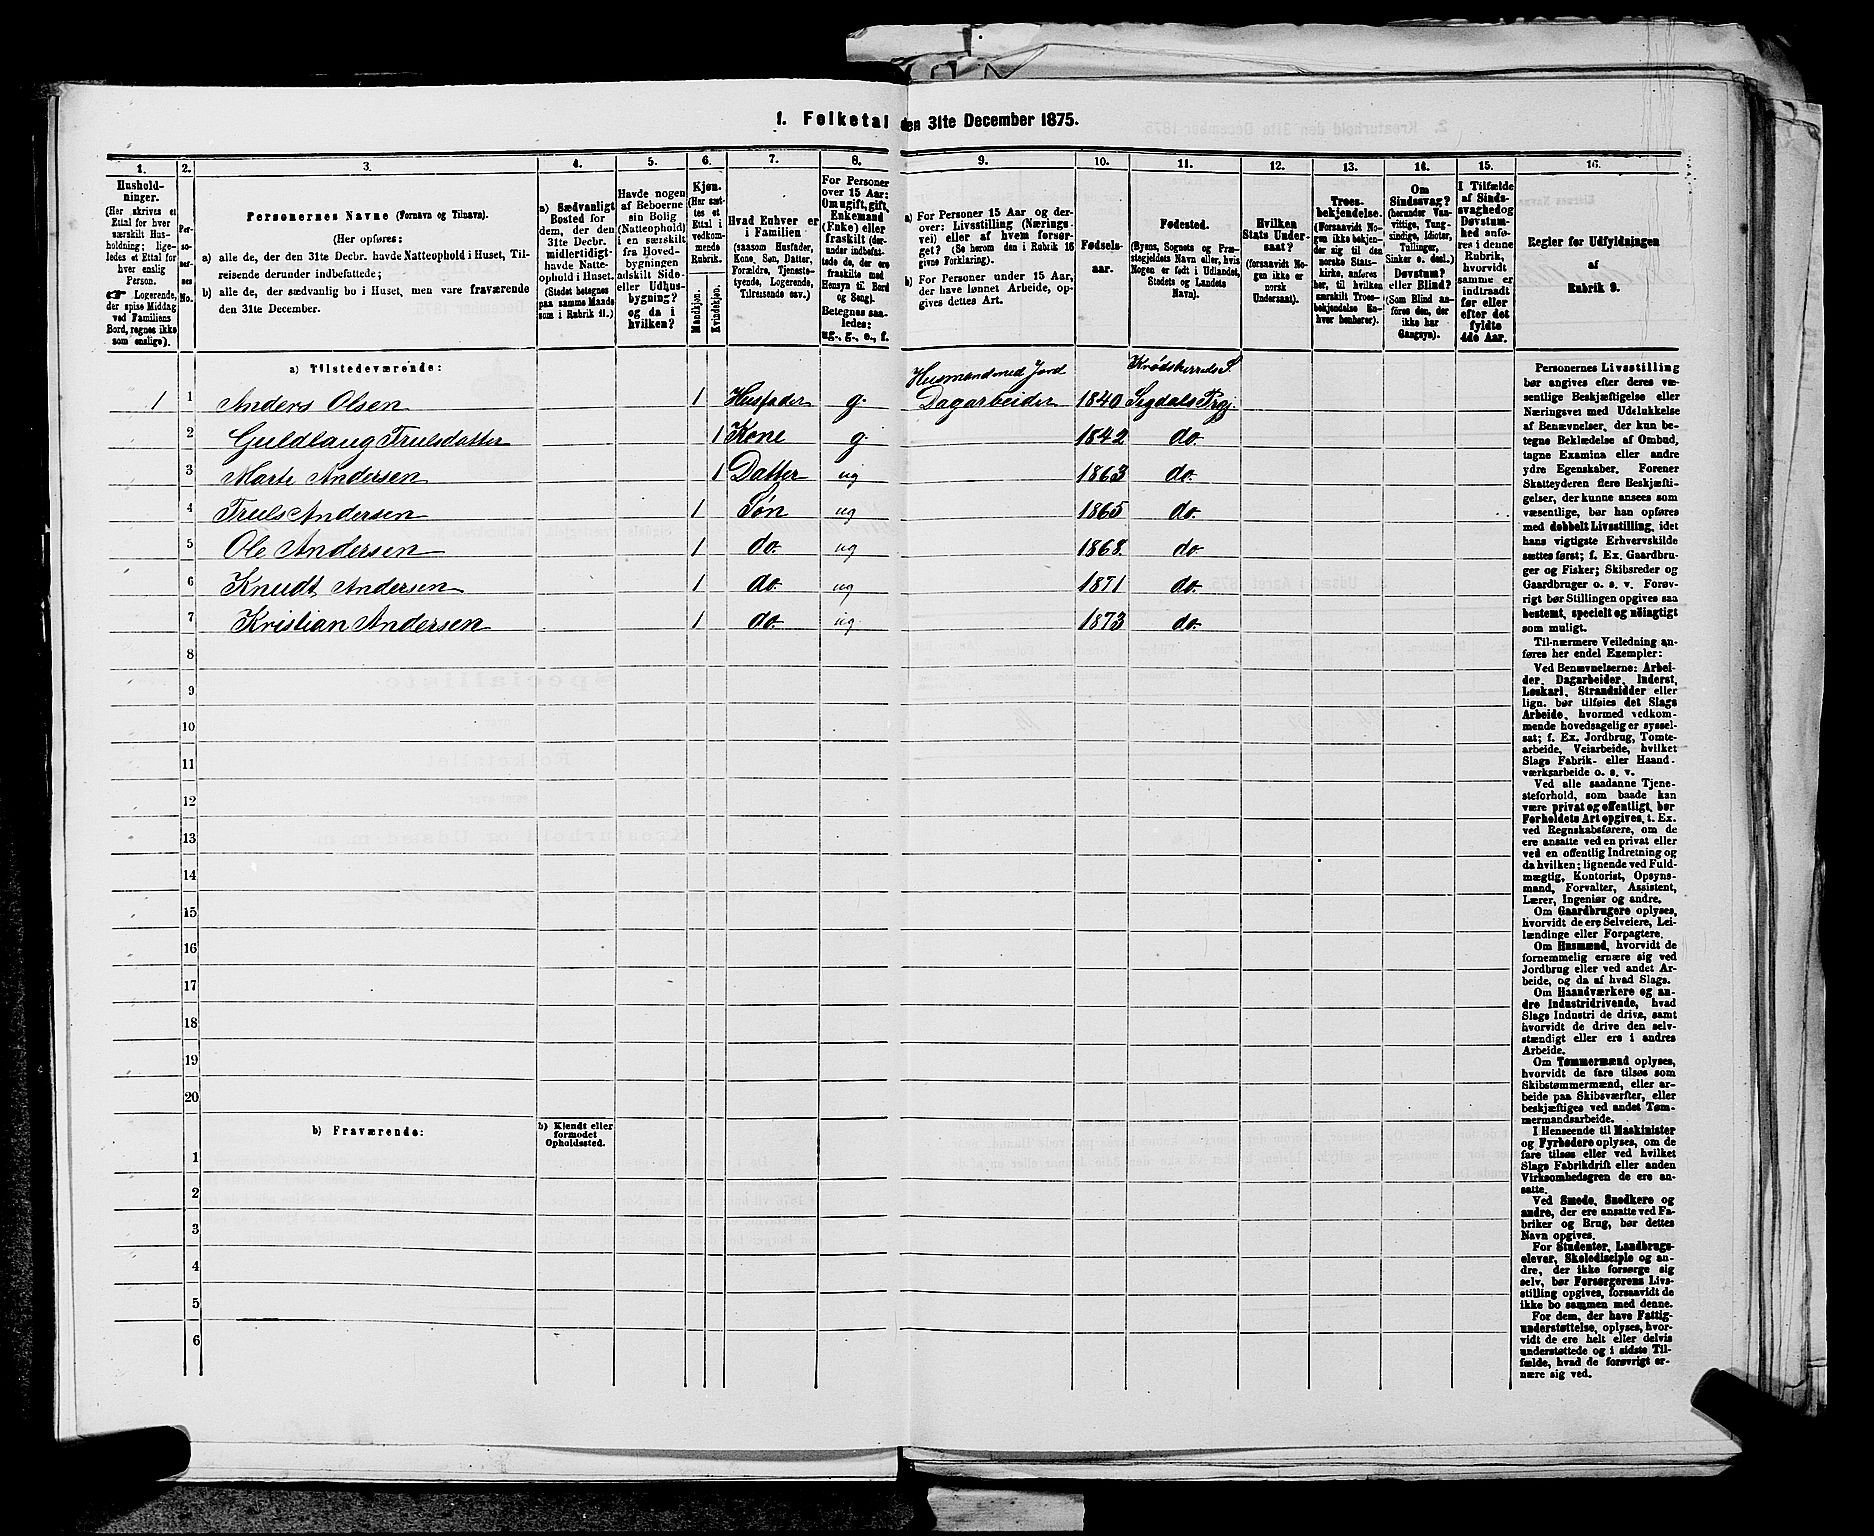 1. Folketal den 31te December 1875.
1. 2. 3. 4. 5. 6. 7. 8. 9. 10. 11. 12. 13. 14. 15. 16.
Hushold-
ninger.
(Her skrives et
Ettal for hver
særskilt Hus-
holdning; lige-
ledes et Ettal for
hver enslig
Person.
☛ Logerende,
der spise Middag
ved Familiens
Bord, regnes ikke
som enslige).
Per-
so-
ner-
nes
No.
Personernes Navne (Fornavn og Tilnavn).
(Her opføres:
a) alle de, der den 31te Decbr. havde Natteophold i Huset, Til-
reisende derunder indbefattede;
b) alle de, der sædvanlig bo i Huset, men vare fraværende
den 31te December.
a) Sædvanligt
Bosted for
dem, der den
31te Decbr.
midlertidigt
havde Natte-
ophold i Huset.
(Stedet betegnes
paa samme Maade
som i Rubrik 11.)
Havde nogen
af Beboerne
sin Bolig
(Natteophold)
i en særskilt
fra Hoved-
bygningen
adskilt Side-
eller Udhus-
bygning?
og da i
hvilken?
Kjøn.
(Her sæt-
tes et
Ettal i
vedkom-
mende
Rubrik.
Mandkjøn.
Kvindekjøn.
Hvad Enhver er
i Familien
(saasom Husfader,
Kone, Søn, Datter,
Forældre, Tjeneste-
tyende, Logerende,
Tilreisende osv.)
For Personer
over 15 Aar:
Om ugift, gift,
Enkemand
(Enke) eller
fraskilt (der-
under indbefat-
tede de, der ere
fraskilte med
Hensyn til Bord
og Seng).
Betegnes saa-
ledes:
ug., g., e., f.
a) For Personer 15 Aar og der-
over: Livsstilling (Nærings-
vei) eller af hvem forsør-
get? (Se herom den i Rubrik 16
givne Forklaring).
b) For Personer under 15 Aar,
der have lønnet Arbeide, op-
gives dettes Art.
Fødsels-
aar.
Fødested.
(Byens, Sognets og Præ-
stegjeldets Navn eller, hvis
Nogen er født i Udlandet,
Stedets og Landets
Navn).
Hvilken
Stats Under-
saat?
(forsaavidt No-
gen ikke er
norsk
Undersaat).
Troes-
bekjendelse.
(Forsaavidt No-
gen ikke bekjen-
der sig til den
norske Stats-
kirke, anføres
her, til hvilken
særskilt Troes-
bekjendelse En-
hver henhører).
Om
Sindssvag?
(herunder Van-
vittige, Tung-
sindige, Idioter,
Tullinger,
Sinker o. desl.)
Døvstum?
eller Blind?
(Som Blind an-
føres den, der
ikke har
Gangsyn).
I Tilfælde
af Sinds-
svaghed og
Døvstum-
hed anfø-
res i denne
Rubrik,
hvorvidt
samme er
indtraadt
før eller
efter det
fyldte
4de Aar.
Regler for Udfyldningen
af
Rubrik 9.
a) Tilstedeværende:
Husmand med Jord Krødsherreds S.
1 1 Anders Olsen 1 Husfader g. Dagarbeider 1840 Sigdals Prgj.
2 Guldlaug Trulsdatter 1 Kone g. 1842 do.
3 Marte Andersen 1 Datter ug 1863 do.
4 Truls Andersen 1 Søn ug 1865 do.
5 Ole Andersen 1 do. ug 1868 do
6 Knudt Andersen 1 do. ug 1871 do.
7 Kristian Andersen 1 do. ug. 1873 do.
8
9
10
11
12
13
14
15
16
17
18
19
20
b) Fraværende:
b) Kjendt eller
formodet
Opholdssted.
1
2
3
4
5
6
Personernes Livsstilling
bør angives efter deres væ-
sentlige Beskjæftigelse eller
Næringsvei med Udelukkelse
af Benævnelser, der kun be-
tegne Bekledelse af Ombud,
tagne Examina eller andre
ydre Egenskaber. Forener
Skatteyderen flere Beskjæfti-
gelser, der kunne ansees som
væsentlige, bør han opføres
med dobbelt Livsstilling, idet
hans vigtigste Erhvervskilde
sættes først; f. Ex. Gaardbru-
ger og Fisker; Skibsreder og
Gaardbruger o. s. v. Forøv-
rigt bør Stillingen opgives saa
bestemt, specielt og nöiagtigt
som muligt.
Til nærmere Veiledning an-
føres her endel Exempler:
Ved Benævnelserne: Arbei-
der, Dagarbeider, Inderst,
Løskarl, Strandsidder eller
lign. bør tilføies det Slags
Arbeide, hvormed vedkom-
mende hovedsagelig er syssel-
sat; f. Ex. Jordbrug, Tomte-
arbeide, Veiarbeide, hvilket
Slags Fabrik- eller Haand-
værksarbeide o. s. v.
Ved alle saadanne Tjene-
steforhold, som baade kan
være privat og offentligt, bør
Forholdets Art opgives, t. Ex.
ved Regnskabsførere, om de
ere ansatte ved en privat eller
ved en offentlig Indretning og
da hvilken; lignende ved Fuld-
mægtig, Kontorist, Opsyns-
mand, Forvalter, Assistent,
Lærer, Ingeniør og andre.
Om Gaardbrugere oplyses,
hvorvidt de ere Selveiere, Lei-
lændinge eller Forpagtere.
Om Husmænd, hvorvidt de
fornemmelig ernære sig ved
Jordbrug eller ved andet Ar-
beide, og da af hvad Slags.
Om Haandværkere og an-
dre Industridrivende, hvad
Slags Industri de drive, samt
hvorvidt de drive den selv-
stændigt eller ere i andres
Arbeide.
Om Tømmermænd oplyses,
hvorvidt de fare tilsøs som
Skibstømmermænd, eller ar-
beide paa Skibsværfter, eller
beskjæftiges ved andet Tøm-
mermandsarbeide.
I Henseende til Maskinister
og Fyrbødere oplyses, om de
fare tilsøs eller ved hvilket
Slags Fabrikdrift eller anden
Virksomhedsgren de ere an-
satte.
Ved Smede, Snedkere og
andre, der ere ansatte ved Fa-
briker og Brug, bør dettes
Navn opgives.
For Studenter, Landbrugs-
elever, Skoledisciple og an-
dre, der ikke forsørge sig
selv, bør Forsørgerens Livs-
stilling opgives, forsaavidt de
ikke bo sammen med denne.
For dem, der have Fattig-
understøttelse, oplyses, hvor-
vidt de ere helt eller delvis
understøttede og i sidste Til-
fælde, hvad de forøvrigt er-
nære sig ved.